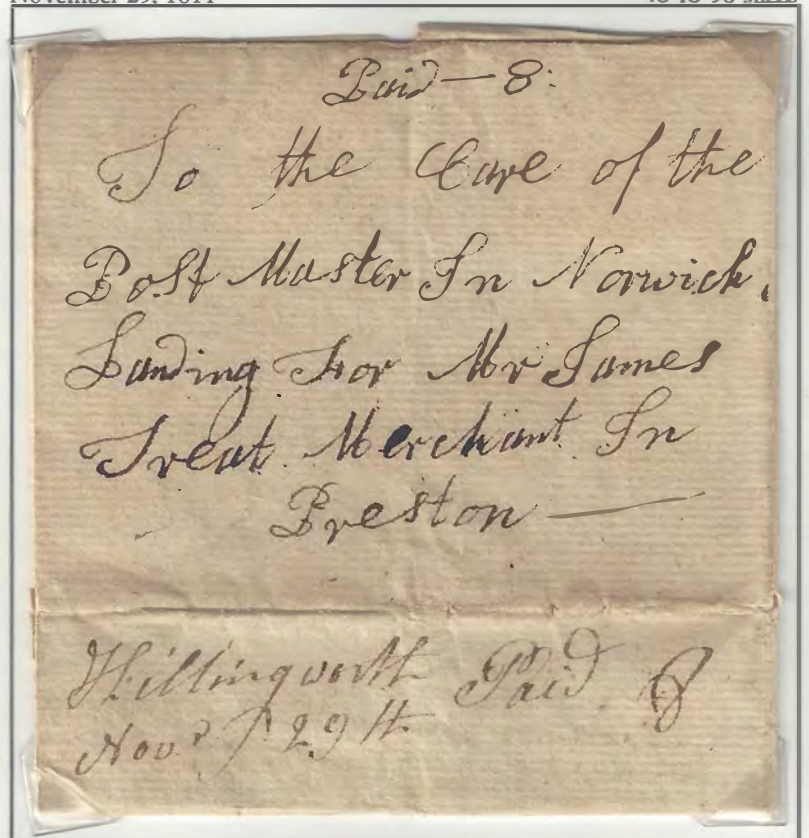 Paid — 8:
To the Care of the
Post Master In Norwich,
Landing For Mr James
Treat Merchant In
Preston —
Killingworth Paid 8
Novr 29th